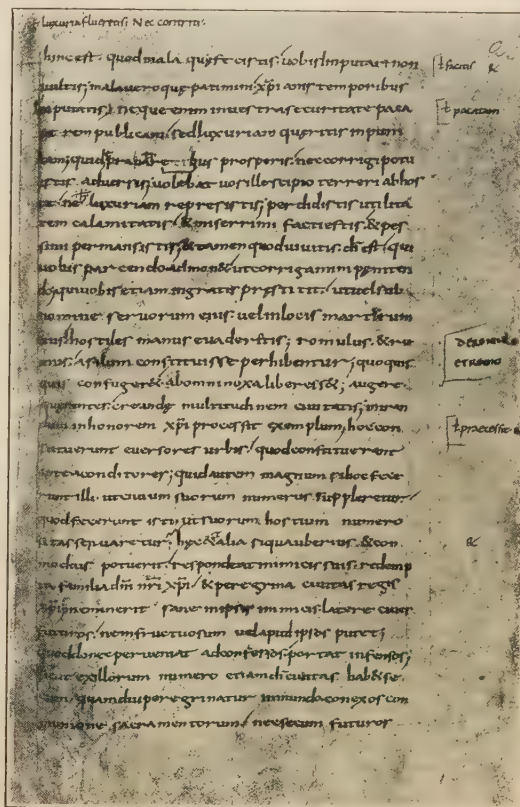 luxuria flueretis; Nec contriti
hinc est quod mala quę fecistis uobis imputari non
uultis; mala uero quę patimini xp̄ianis temporibus
inputatis; neque enim in uestra securitate paca
rem publicam, sed luxuriam queritis inpuni
tam; qui rebus prosperis nec corrigi potu
istis aduersis; uolebat uos ille scipio terreri ab hos
te ne luxuriam represistis; perdidistis utilita
tem calamitatis & miserrimi facti estis & pes
simi permansistis & tamen quod uiuitis di est qui
uobis parcendo admon& ut corrigamini peniten
do; qui uobis etiam ingratis prestitit ut uel sub
nomine seruorum eius uel in locis martyrum
eius hostiles manus euaderetis; romulus & re
mus asylum constituisse perhibentur; quo quis
quis confuger& ab omni noxa liber ess&; augere
creandę multitudinem ciuitatis; miran
dum in honorem xp̄i processit exemplum, hoc con
stituerunt euersores urbis quod constituerunt
antea conditores; quid autem magnum si hoc fece
runt illi ut ciuium suorum numerus suppleretur
quod fecerunt isti ut suorum hostium numero
sitas seruaretur; hęc & alia siqua uberius & con
modius potuerit respondeat inimicis suis redemp
ta familia dn̄i nr̄i xp̄i & peregrina ciuitas regis
xp̄i meminerit sane in ipsis inimicis latere ciues
futuros ne infructuosum uel apud ipsos putet
quod donec perueniat ad confessos portat infensos;
sicut ex illorum numero etiam di ciuitas hab& se
cum quamdiu peregrinatur in mundo conexos con
munione sacramentorum nec secum futuros
ł factis &
ł pacatam
DE ROMULO
ET REMO
ł praecessit
&